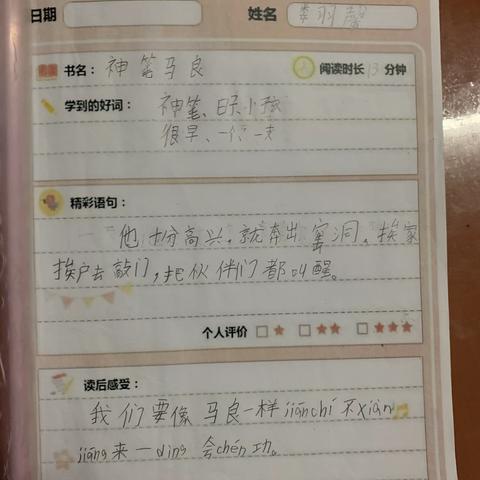 日期 姓名 李羽馨
书名：神笔马良 阅读时长 13 分钟
学到的好词：神笔、日子、小孩
很早、一个、一支
精彩语句：
他十分高兴，就奔出窑洞，挨家
挨户去敲门，把伙伴们都叫醒。
个人评价 □★ □★★ □★★★
读后感受：
我们要像马良一样jiānchí不xiàn
jiāng来一dìng会chén功。